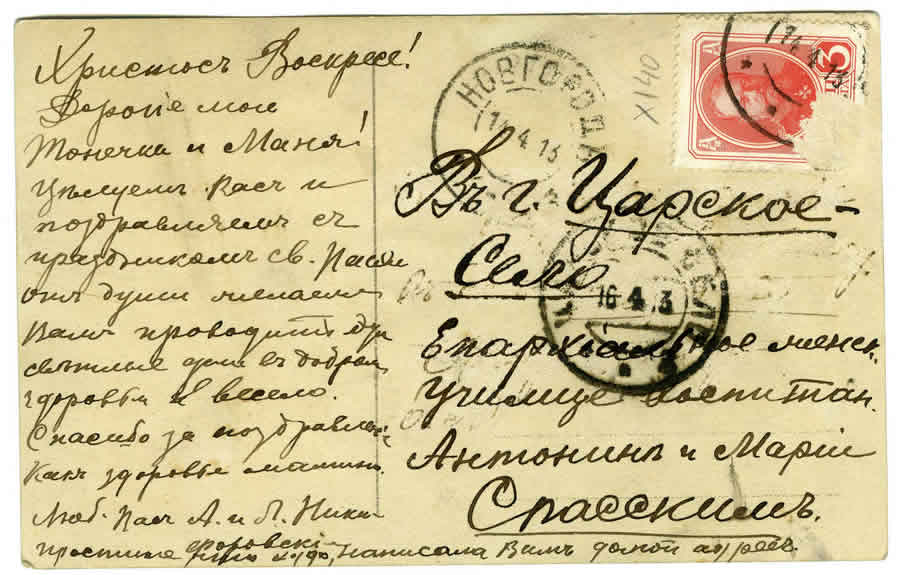 Христосъ Воскресе!
Дорогіе мои
Тонечка и Маня!
Цѣлуемъ Васъ и
поздравляемъ съ
праздникомъ св. Пасхи
отъ души желаемъ
Вамъ проводить
свѣтлые дни въ добром
здоровьи и весело.
Спасибо за поздравл
Какъ здоровье мамино
Люб. Васъ А. и Л. Ники
форовскі
простите написала Вамъ домой адресъ.
НОВГОРОДЪ
14 4 13
×140
14.4.13
3
Въ г. Царское-
Село
16 4 13
Епархіальное женск.
училище воспитан.
Антонинѣ и Маріи
Спасскимъ.